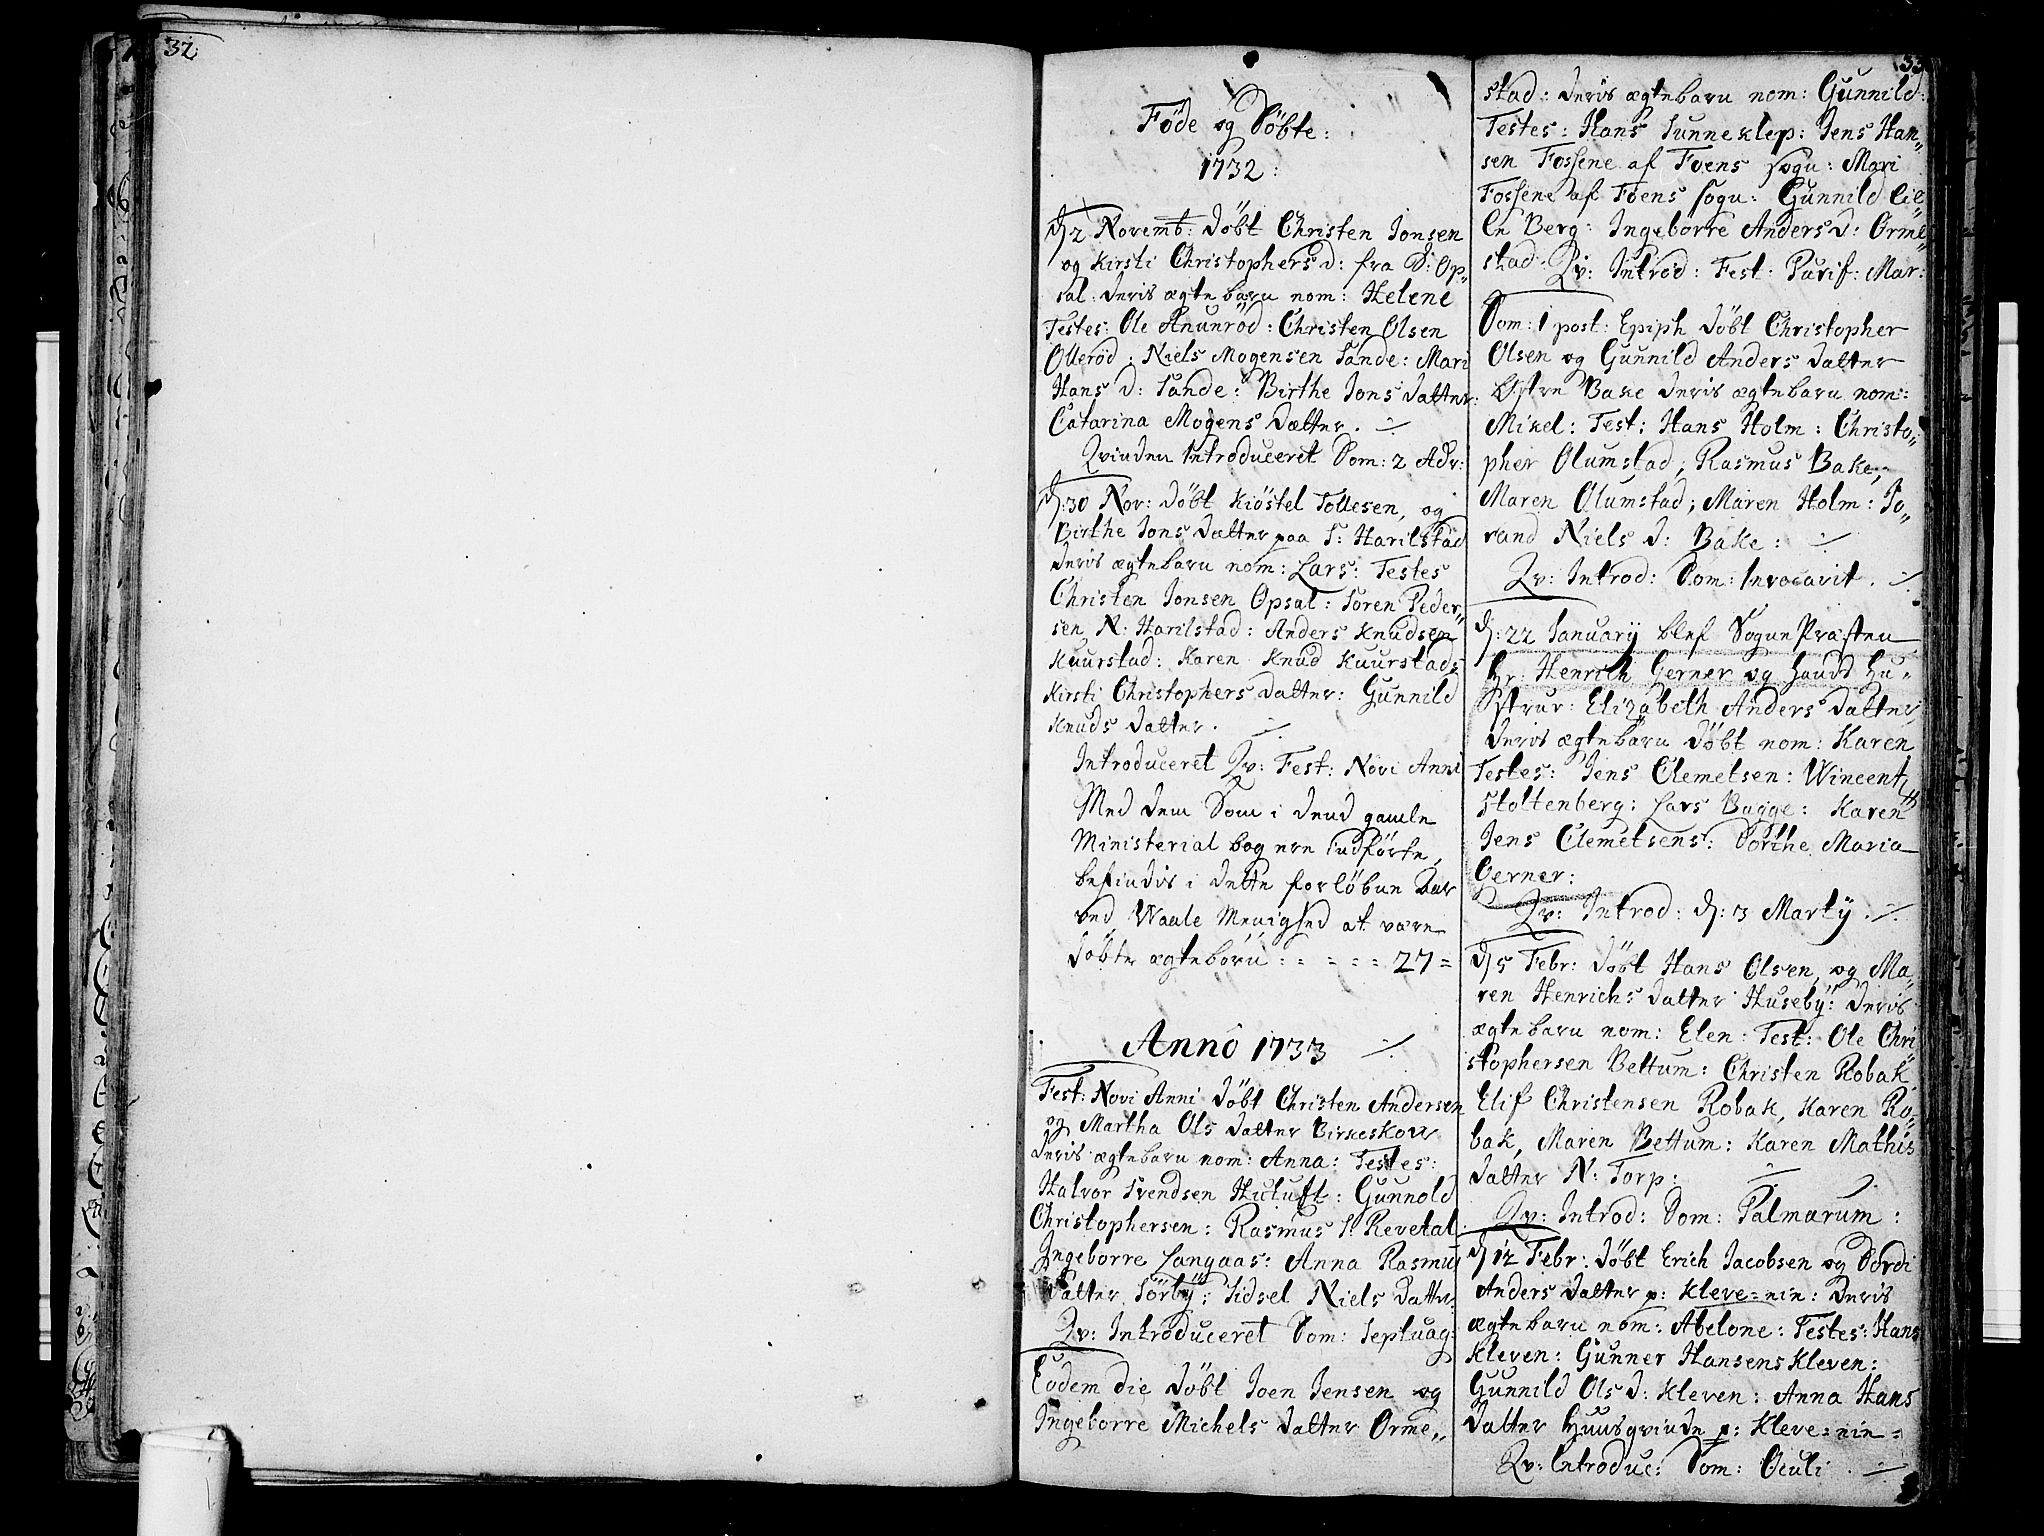 32
Föde og Döbte:
1732:
d: 2 Novemb: döbt Christen Jonsen
og Kirsti Christophers d: fra S: Op„
sal: deris ægte barn nom: Helene
Testes: Ole Anunröd: Christen Olsen
Olleröd: Niels Mogensen Sande: Mari
Hans d: Sande: Birthe Jons datter:
Catarina Mogens Datter. ./.
Qvinden Introduceret Dom: 2 Adv:
d: 30 Nov: döbt Kiöstel Tollesen, og
Birthe Jons datter paa S: Harilstad
deris ægte barn nom: Lars: Testes
Christen Jonsen Opsal: Sören Peder„
sen N: Harilstad: Anders Knudsen
Kuurstad: Karen Knud Kuurstads
Kirsti Christophers datter: Gunnild
Knuds datter. ./.
Introduceret Qv: Fest: Novi Anni
Med dem Som i dend gamle
Ministerial bog ere indförte,
befindis i dette forløbne Aar
ved Waale Menighed at være
döbte ægte börn: = = = = = 27 =
Anno 1733 ./.
Fest: Novi Anni döbt Christen Andersen
og Martha Ols datter Birkeskow
deris ægte barn nom: Anna: Testes:
Halvor Svendsen Hutuft: Gunnold
Christophersen: Rasmus S: Revetal
Ingeborre Langaas: Anna Rasmus
datter Sörbÿ: Sidsel Niels Datter:
Qv: Introduceret Dom: Septuag:
Eodem die döbt Joen Jensen og
Ingeborre Michels datter Orme„
33
stad: deris ægte barn nom: Gunnild:
Testes: Hans Sunneklep: Jens Han„
sen Fossene af Foens sogn: Mari
Fossene af Foens sogn: Gunnild lie„
le Berg: Ingeborre Anders d: Orme„
stad. Qv: Introd: Fest: Purif: Mar:
Dom: 1 post: Epiph döbt Christopher
Olsen og Gunnild Anders datter
Østre Bake deris ægte barn nom:
Mikel: Test: Hans Holm: Christo„
pher Olumstad; Rasmus Bake,
Maren Olumstad; Maren Holm: Jo„
rand Niels d: Bake: ./.
Qv: Introd: Dom: Invocavit. ./.
d: 22 Januarÿ blef Sogne Præsten
Hr: Henrich Gerner og hands Hu„
strur: Elizabeth Anders datter
deris ægte barn döbt nom: Karen
Testes: Jens Clemetsen: Wincentz
Stoltenberg: Lars Bugge: Karen
Jens Clemetsens: Dorthe Maria
Gerner:
Qv: Introd: d: 3 Martÿ. ./.
d: 5 Febr: döbt Hans Olsen, og Ma„
ren Henrichs datter Husebÿ: deris
ægte barn nom: Elen: Test: Ole Chri„
stophersen Bettum: Christen Robak
Elif Christensen Robak, Karen Ro„
bak, Maren Bettum: Karen Mathis
datter N: Torp: ./.
Qv: Introd: Dom: Palmarum:
d: 12 Febr: döbt Erich Jacobsen og Dordi
Anders datter p: Kleve=eie: deris
ægte barn nom: Abelone: Testes: Hans
Kleven: Gunner Hansens Kleven:
Gunnild Ols d: Kleven: Anna Hans
datter Huusqvinde p: Kleve=eie =
Qv: Introduc: Dom: Oculi. ./.